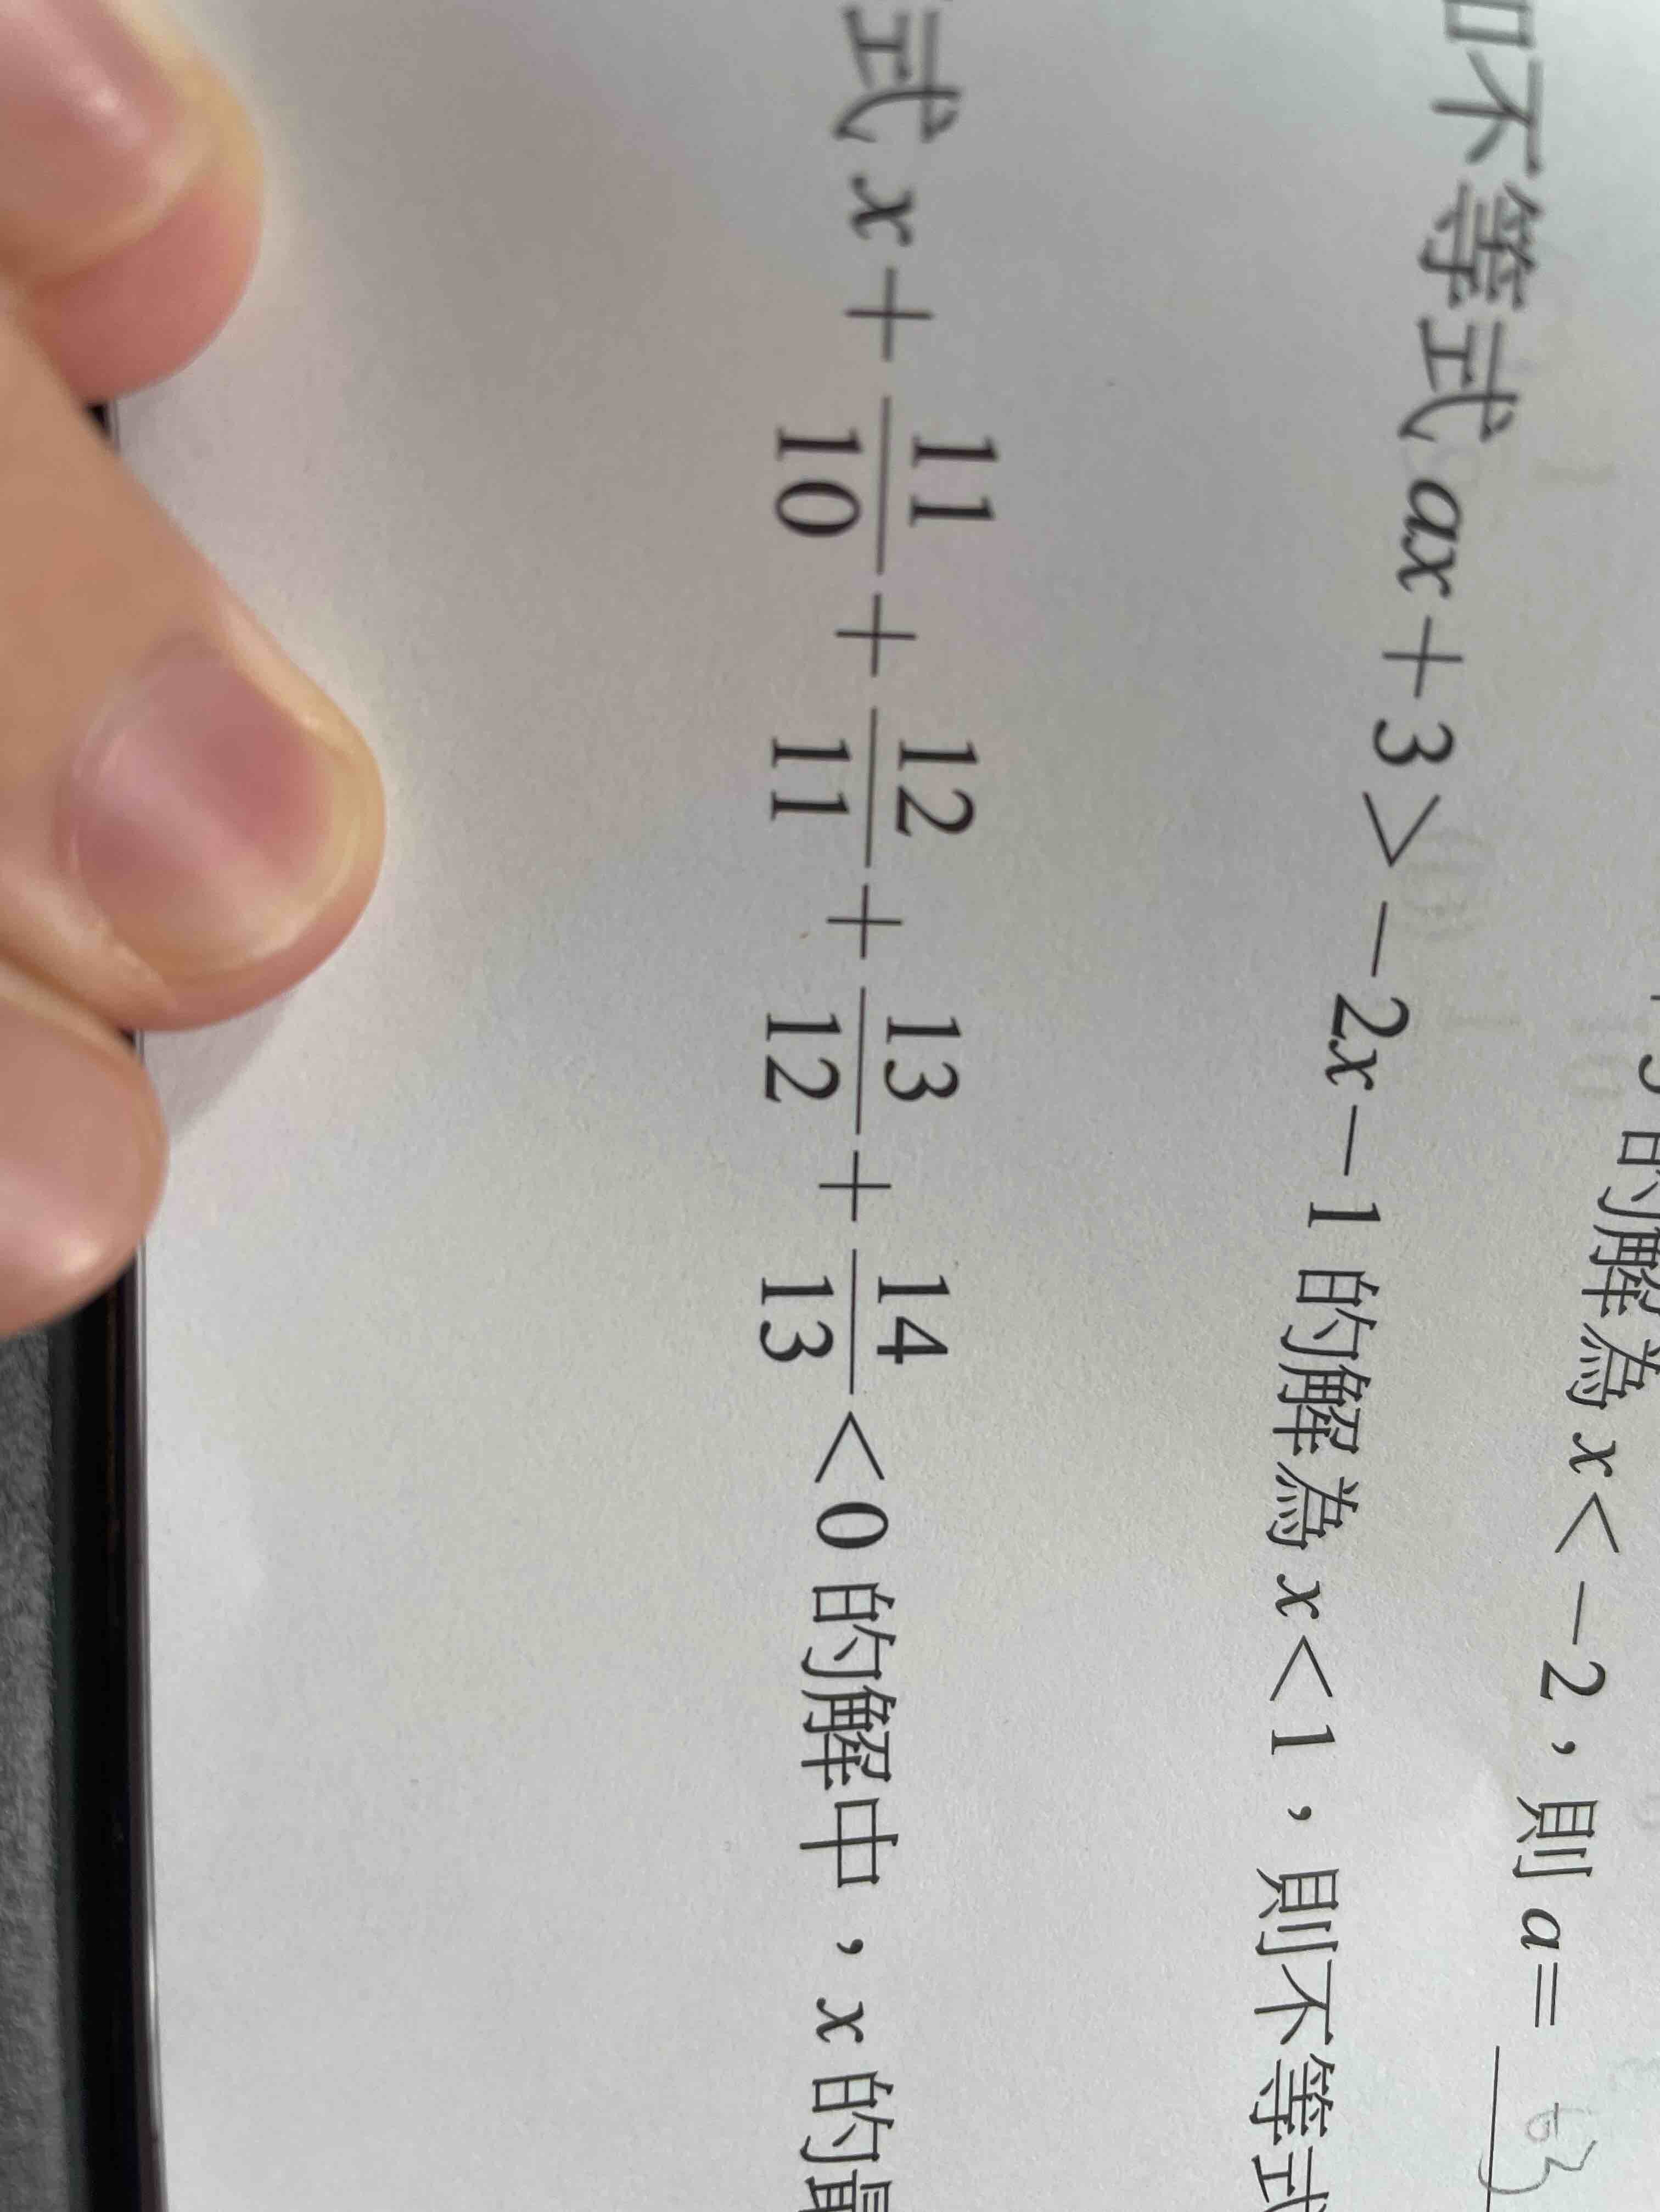 的解為 x<-2，則 a=
不等式 ax+3>-2x-1 的解為 x<1，則不等式
式 x+11/10+12/11+13/12+14/13<0 的解中，x 的最